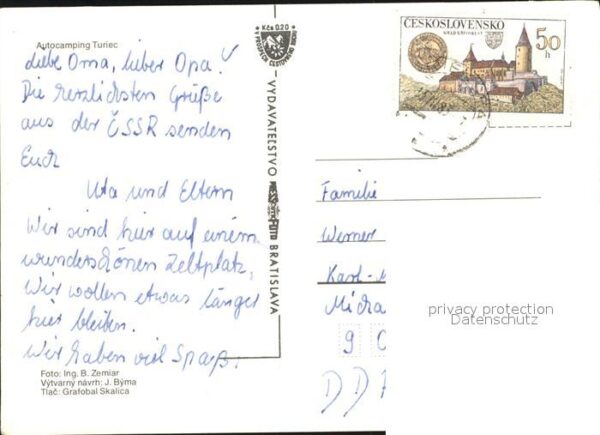 Autocamping Turiec
Liebe Oma, lieber Opa!
Die herzlichsten Grüße
aus der ČSSR senden
Euch
Uta und Eltern
Wir sind hier auf einem
wunderschönen Zeltplatz,
Wir wollen etwas länger
hier bleiben.
Wir haben viel Spaß.
Foto: Ing. B. Zemiar
Výtvarný návrh: J. Býma
Tlač: Grafobal Skalica
Kčs 0,20
VYDAVATEĽSTVO
BRATISLAVA
ČESKOSLOVENSKO
50
h
Familie
Werner
Karl-M
Micha
9
DD
privacy protection
Datenschutz